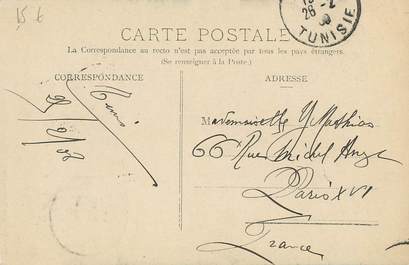 15 6
28 -2
TUNISIE
CARTE POSTALE
La Correspondance au recto n'est pas acceptée par tous les pays étrangers.
(Se renseigner à la Poste.)
CORRESPONDANCE
ADRESSE
Mademoiselle Y Mathias
66 Rue Michel Ange
Paris XVI
France